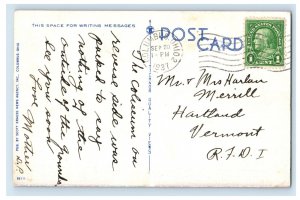 THIS SPACE FOR WRITING MESSAGES
POST CARD
The Coliseum on
reverse side was
packed to say
nothing of the
outside of the grounds.
See you soon!
Love Mother
Mr + Mrs Harlan
Merrill
Hartland
Vermont
R.F.D. 1
SEP
PM
1927
OHIO
1